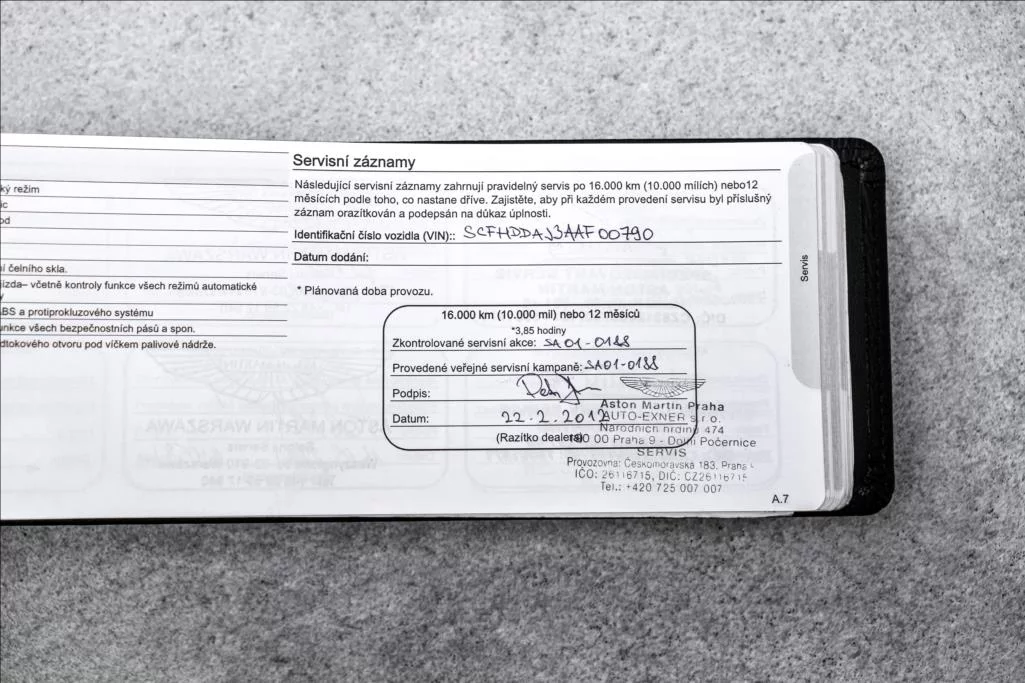 ký režim
ic
od
í čelního skla.
ízda– včetně kontroly funkce všech režimů automatické
y
ABS a protiprokluzového systému
unkce všech bezpečnostních pásů a spon.
dtokového otvoru pod víčkem palivové nádrže.
Servisní záznamy
Následující servisní záznamy zahrnují pravidelný servis po 16.000 km (10.000 mílích) nebo12
měsících podle toho, co nastane dříve. Zajistěte, aby při každém provedení servisu byl příslušný
záznam orazítkován a podepsán na důkaz úplnosti.
Identifikační číslo vozidla (VIN):: SCFHDDAJ3AAF00790
Datum dodání:
* Plánovaná doba provozu.
16.000 km (10.000 mil) nebo 12 měsíců
*3,85 hodiny
Zkontrolované servisní akce: SA01-0188
Provedené veřejné servisní kampaně: SA01-0188
Podpis:
Datum: 22.2.2012
(Razítko dealera)
Aston Martin Praha
AUTO-EXNER s.r.o.
Národních hrdinů 474
190 00 Praha 9 - Dolní Počernice
SERVIS
Provozovna: Českomoravská 183, Praha
IČO: 26116715, DIČ: CZ26116715
Tel.: +420 725 007 007
A.7
Servis